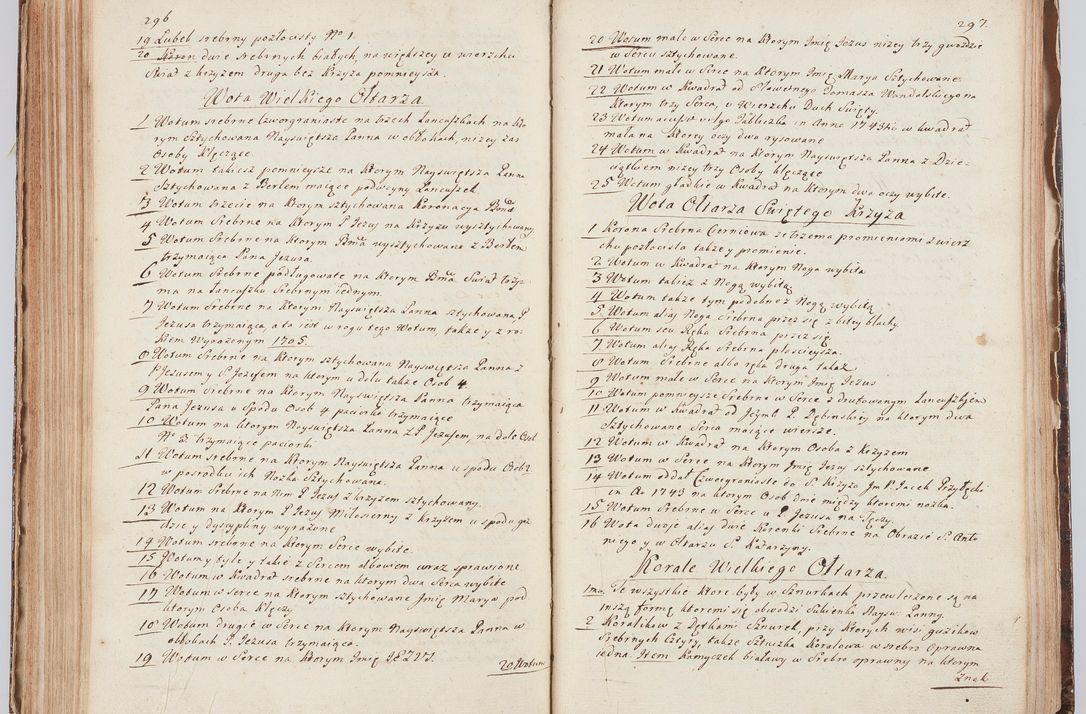 296
19 Lubek srebrny pozłocisty No 1.
20 Koron dwie Srebrnych białych, na większey w wierzchu
Swiat z krzyżem druga bez Krzyża pomnieysza.
Wota Wielkiego Ołtarza.
1 Wotum srebrne Czworgraniaste na trzech Łancuszkach na któ-
rym Sztychowana Nayswiętsza Panna w obłokach, niżey zaś
Osoby Klęczące.
2 Wotum takież pomnieysze na ktorym Nayswiętsza Panna
Sztychowana z Berłem maiące podwoyny Lancuszek.
3 Wotum trzecie na ktorym sztychowana Koronacya
4 Wotum Srebrne na ktorym P Jezus na Krzyżu wysztychowany
5 Wotum Srebrne na ktorym wysztychowane z Berłem
trzymaiąca Pana Jezusa.
6 Wotum Srebrne podługowate na ktorym Swiat trzy-
ma na Łancuszku Srebrnym iednym.
7 Wotum Srebrne na ktorym Nayswiętsza Panna sztychowana P
Jezusa trzymaiąca, a to iest w rogu tego Wotum także y z ro-
kiem Wyrażonym 1705.
8 Wotum Srebrne na ktorym sztychowana Nayswiętsza Panna z
P Jezusem y S Jozefem na ktorym u dołu także Osob 4
9 Wotum Srebrne na ktorym Nayswiętsza Panna trzymaiąca
Pana Jezusa u Spodu Osob 4 paciorko trzymaiące
10 Wotum na ktorym Nayswiętsza Panna z S Jozefem, na dole Osob
No 3 trzymaiące paciorki
11 Wotum srebrne na ktorym Nayswiętsza Panna u spodu Osob 2
w posrodku ich Nozka Sztychowana.
12 Wotum Srebrne na Nim P Jezus z krzyżem sztychowany.
13 Wotum na ktorym P Jezus Miłosierny z krzyżem u spodu gwoź-
dzie y dyscypliny wyrażone
14 Wotum srebrne na ktorym Serce wybite
15 Wotum y tyle y takie z Sercem albowiem wraz sprawione
16 Wotum w Kwadrat srebrne na ktorym dwa Serca wybite
17 Wotum w Serce na ktorym sztychowane Jmię Marya pod
ktorym Osoba Klęczy
18 Wotum drugie w Serce na ktorym Nayswiętsza Panna w
obłokach P. Jezusa trzymaiąca.
19 Wotum w Serce na ktorym Jmię JEZUS.
20 Wotum
297.
20 Wotum małe w Serce na ktorym Jmię Jezus niżey trzy gwoździe
w Sercu sztychowane.
21 Wotum małe w Serce na ktorym Jmię Marya Sztychowane.
22 Wotum w Kwadrat od Sławetnego Tomasza Wandolskiego na
ktorym trzy Serca, u Wierzchu Duch Swięty
23 Wotum Tabliczka in Anno 1743tio w kwadrat
mała na ktorey oczy dwo rysowane
24 Wotum w Kwadrat na ktorym Nayswiętsza Panna z Dzie-
ciątkiem niżey trzy Osoby klęczące
25 Wotum gładkie w Kwadrat na ktorym dwa oczy wybite.
Wota Ołtarza Swiętego Krzyża
1 Korona Srebrna Cierniowa ze trzema promieniomi z wierz-
chu pozłocista także y promienie.
2 Wotum w Kwadrat na ktorym Noga wybita
3 Wotum takież z Nogą wybitą
4 Wotum także tym podobne z Nogą wybitą
5 Wotum alias Noga Srebrna przez się z bitey blachy
6 Wotum seu Ręka Srebrna przez się
7 Wotum alias Ręka Srebrna płascieysza.
8 Wotum Srebrne albo ręka druga takaż
9 Wotum małe w Serce na ktorym Jmię Jezus
10 Wotum pomnieysze Srebrne w Serce z drutowanym Lancuszkiem
11 Wotum w Kwadrat od Jeymci P. Dębinskiey na ktorym dwa
Sztychowane Serca maiące wiersze.
12 Wotum w Kwadrat na ktorym Osoba z krzyżem
13 Wotum w Serce na ktorym Jmię Jezus sztychowane
14 Wotum oddał Czworgraniaste do S. Krzyża Jm P. Jacek Przyłęcki
in Ao 1743 na ktorym Osob dwie między ktoremi nożka.
15 Wotum Srebrne w Serce u P. Jezusa na Szyy.
16 Wota dwoje alias dwie Koronki Srebrne na Obrazie S. Anto-
niego y w Ołtarzu S. Katarzyny.
Korale Wielkiego Ołtarza.
1mo. Te wszystkie ktore były w Sznurkach przewleczone są na
inszą formę ktoremi się obwodzi Sukienka Nayśw: Panny.
2 Koralikow z Dętkami Sznurek, przy ktorych wisi guzikow
Srebrnych Cztyry, także Sztuczka Koralowa w srebro Oprawna
iedna. Item Kamyczek białawy w Srebro oprawny na ktorym
Znak